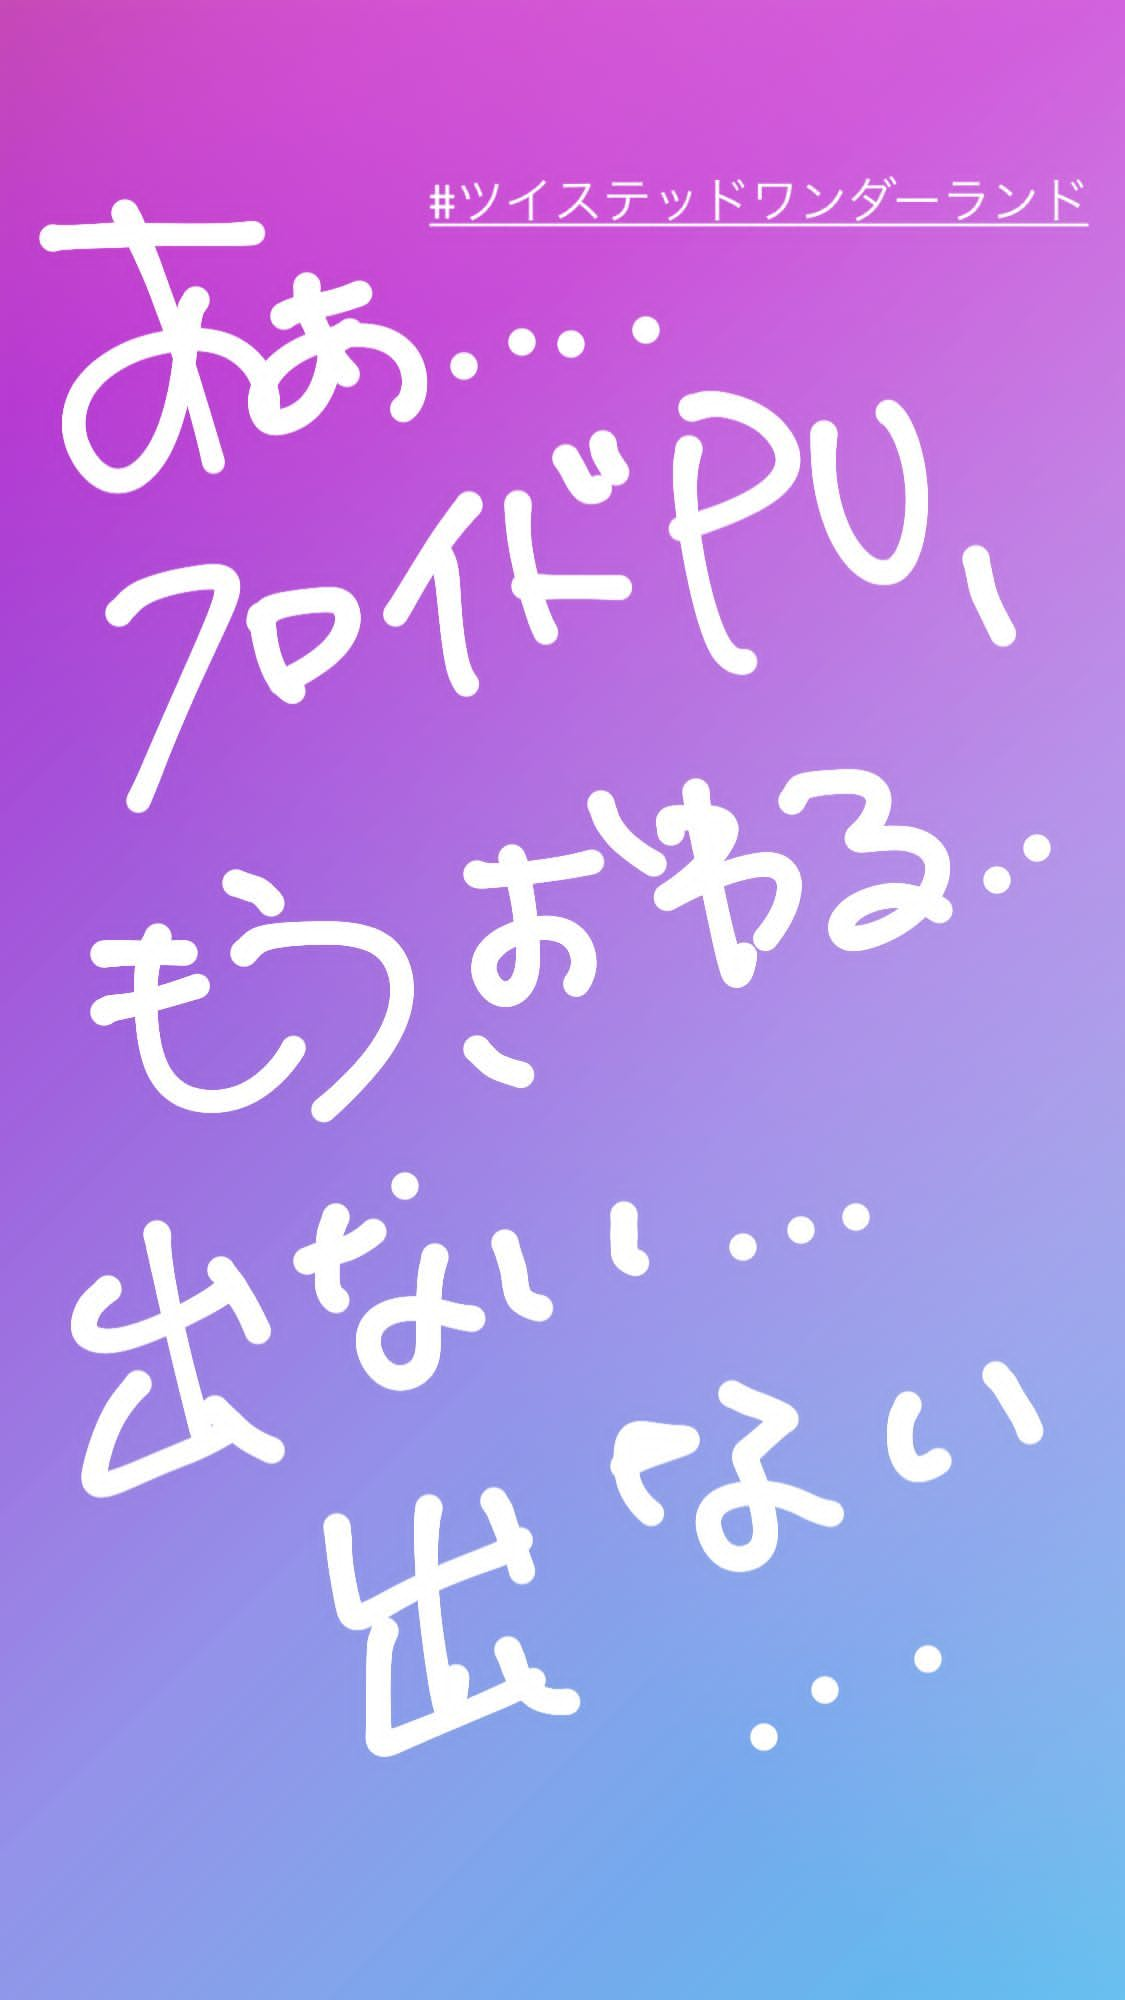 #ツイステッドワンダーランド
あぁ....
フロイドPU、
もうおわる..
出ない...
出ない
...